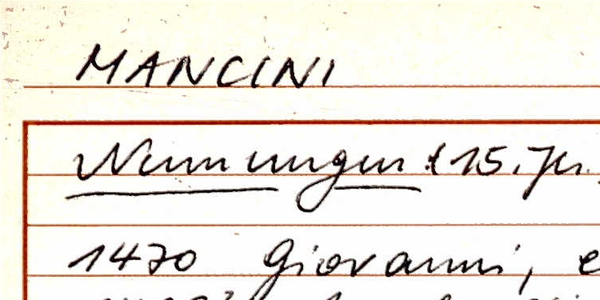 MANCINI
Nennungen: 15. Jh.
1470 Giovanni,